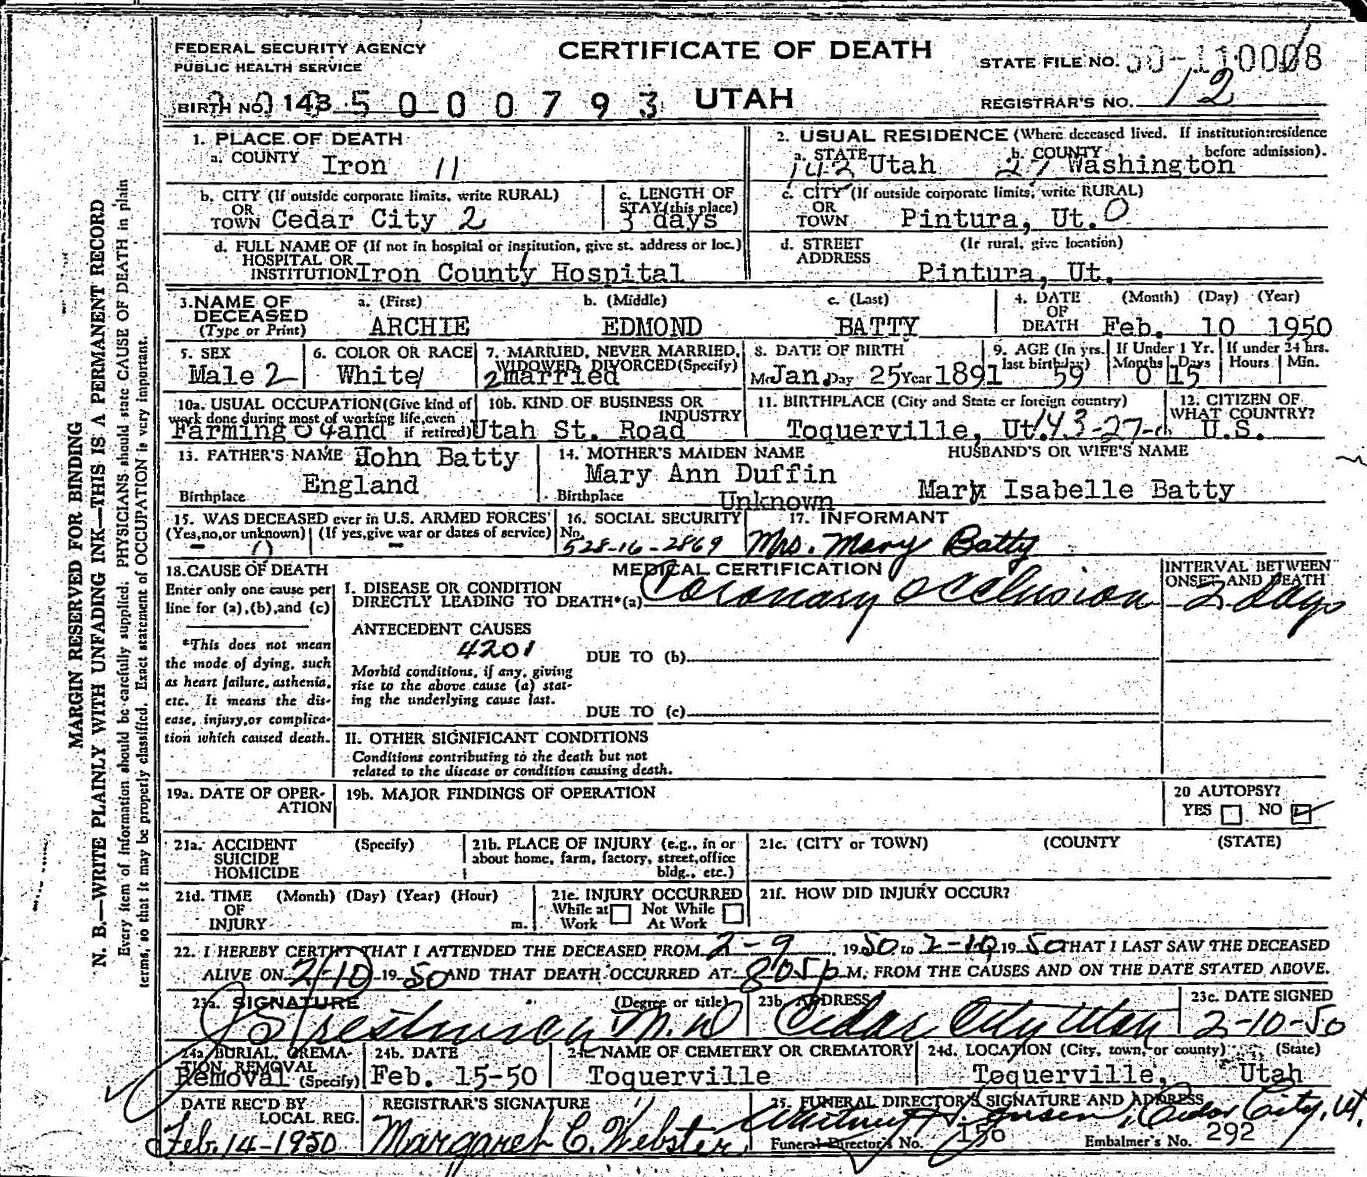 FEDERAL SECURITY AGENCY
PUBLIC HEALTH SERVICE
CERTIFICATE OF DEATH
UTAH
STATE FILE NO. 50-110008
BIRTH NO. 143 5 0 0 0 7 9 3
REGISTRAR'S NO. 12
1. PLACE OF DEATH
a. COUNTY Iron 11
2. USUAL RESIDENCE (Where deceased lived. If institution:residence before admission).
a. STATE 142 Utah 27 b. COUNTY Washington
b. CITY (If outside corporate limits, write RURAL)
OR
TOWN Cedar City 2
c. LENGTH OF STAY (this place)
3 days
c. CITY (If outside corporate limits, write RURAL)
OR
TOWN Pintura, Ut. 0
d. FULL NAME OF (If not in hospital or institution, give st. address or loc.)
HOSPITAL OR
INSTITUTION Iron County Hospital
d. STREET ADDRESS (If rural, give location)
Pintura, Ut.
3. NAME OF DECEASED (Type or Print)
a. (First) b. (Middle) c. (Last)
ARCHIE EDMOND BATTY
4. DATE OF DEATH (Month) (Day) (Year)
Feb. 10 1950
5. SEX
Male 2
6. COLOR OR RACE
White
7. MARRIED, NEVER MARRIED, WIDOWED, DIVORCED (Specify)
2 married
8. DATE OF BIRTH
Mo. Jan. Day 25 Year 1891
9. AGE (In yrs. last birthday) 59
If Under 1 Yr. Months 0 Days 15
If under 24 hrs. Hours Min.
10a. USUAL OCCUPATION (Give kind of work done during most of working life, even if retired)
Farming and
10b. KIND OF BUSINESS OR INDUSTRY
Utah St. Road
11. BIRTHPLACE (City and State or foreign country)
Toquerville, Ut. 143-27-
12. CITIZEN OF WHAT COUNTRY?
U.S.
13. FATHER'S NAME John Batty
Birthplace England
14. MOTHER'S MAIDEN NAME
Mary Ann Duffin
Birthplace Unknown
HUSBAND'S OR WIFE'S NAME
Mary Isabelle Batty
15. WAS DECEASED ever in U.S. ARMED FORCES?
(Yes, no, or unknown) (If yes, give war or dates of service)
16. SOCIAL SECURITY No.
528-16-2869
17. INFORMANT
Mrs. Mary Batty
18. CAUSE OF DEATH
Enter only one cause per line for (a), (b), and (c)
*This does not mean the mode of dying, such as heart failure, asthenia, etc. It means the disease, injury, or complication which caused death.
MEDICAL CERTIFICATION
INTERVAL BETWEEN ONSET AND DEATH
I. DISEASE OR CONDITION
DIRECTLY LEADING TO DEATH*(a) Coronary occlusion 2 days
ANTECEDENT CAUSES
4201
DUE TO (b)
Morbid conditions, if any, giving rise to the above cause (a) stating the underlying cause last.
DUE TO (c)
II. OTHER SIGNIFICANT CONDITIONS
Conditions contributing to the death but not related to the disease or condition causing death.
19a. DATE OF OPERATION
19b. MAJOR FINDINGS OF OPERATION
20 AUTOPSY?
YES NO
21a. ACCIDENT SUICIDE HOMICIDE (Specify)
21b. PLACE OF INJURY (e.g., in or about home, farm, factory, street, office bldg., etc.)
21c. (CITY or TOWN) (COUNTY) (STATE)
21d. TIME OF INJURY (Month) (Day) (Year) (Hour) m.
21e. INJURY OCCURRED
While at Work Not While At Work
21f. HOW DID INJURY OCCUR?
22. I HEREBY CERTIFY THAT I ATTENDED THE DECEASED FROM 2-9 1950 to 2-10 1950 THAT I LAST SAW THE DECEASED
ALIVE ON 2-10 1950 AND THAT DEATH OCCURRED AT 805 P M. FROM THE CAUSES AND ON THE DATE STATED ABOVE.
23a. SIGNATURE (Degree or title)
M. D
23b. ADDRESS
Cedar City Utah
23c. DATE SIGNED
2-10-50
24a. BURIAL, CREMATION, REMOVAL (Specify)
Removal
24b. DATE
Feb. 15-50
24c. NAME OF CEMETERY OR CREMATORY
Toquerville
24d. LOCATION (City, town, or county) (State)
Toquerville, Utah
DATE REC'D BY LOCAL REG.
Feb. 14-1950
REGISTRAR'S SIGNATURE
Margaret C. Webster
25. FUNERAL DIRECTOR'S SIGNATURE AND ADDRESS
Cedar City, Ut.
Funeral Director's No. 150
Embalmer's No. 292
MARGIN RESERVED FOR BINDING
N. B.—WRITE PLAINLY WITH UNFADING INK—THIS IS A PERMANENT RECORD
Every item of information should be carefully supplied. PHYSICIANS should state CAUSE OF DEATH in plain
terms, so that it may be properly classified. Exact statement of OCCUPATION is very important.